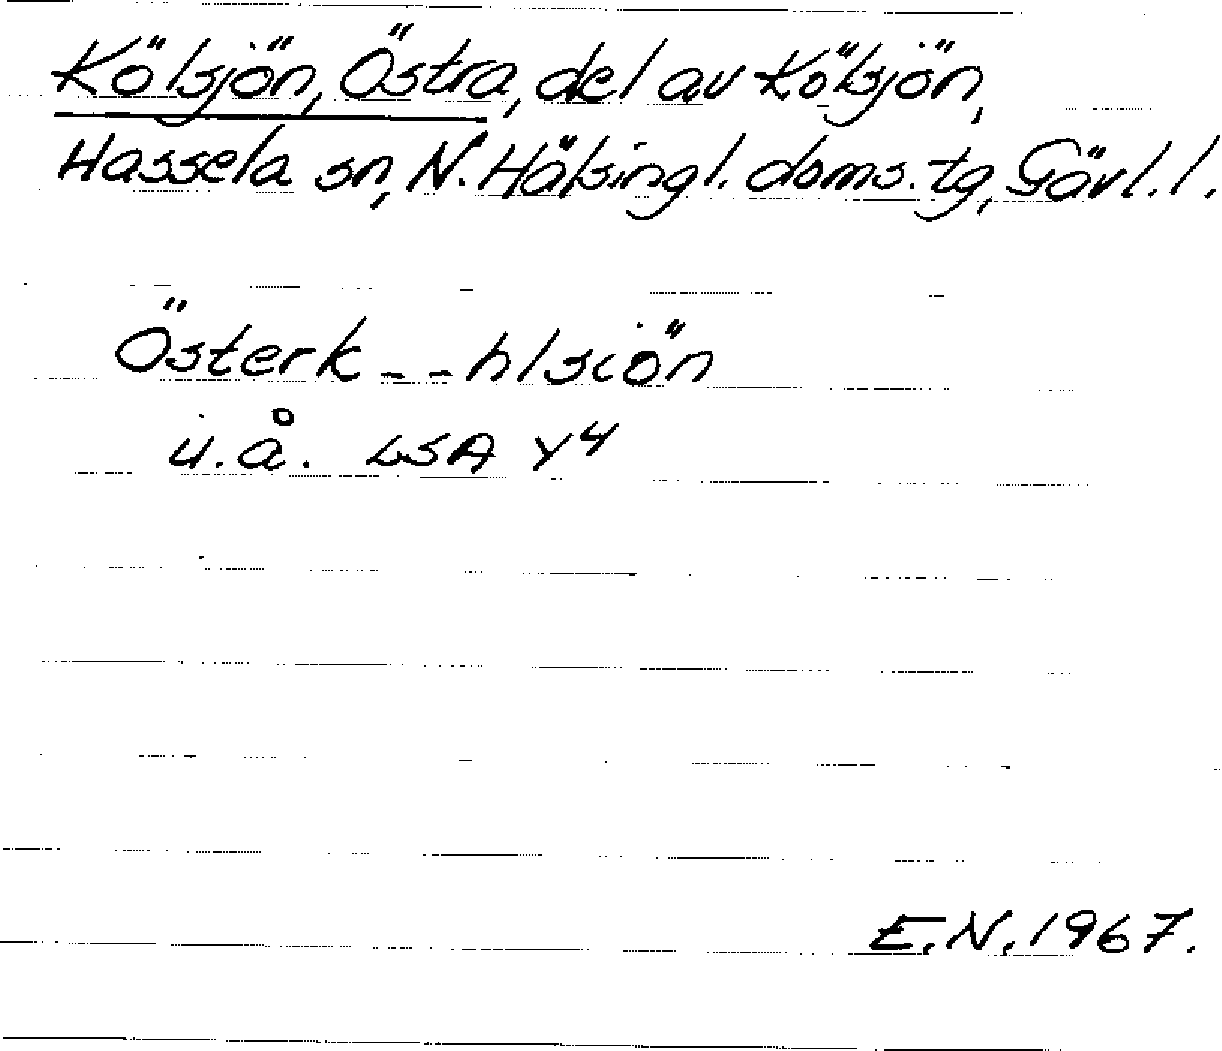 Kölsjön, Östra, del av Kölsjön,
Hassela sn, N. Hälsingl. doms. tg, Gävl. l.
Österk _ _ hlsiön
u.å. LSA Y4
E.N. 1967.